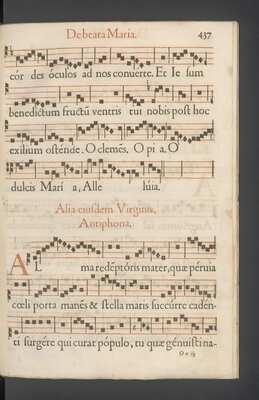 De beata Maria. 437
cór des óculos ad nos conuerte. Et Ie sum
benedíctum fructũ ventris tui nobis post hoc
exílium osténde. O clemẽs, O pi a, O
dulcis Marí a, Alle lúia.
Alia eiusdem Virginis,
Antiphona.
AL ma redẽptóris mater, quæ péruia
cœli porta manẽs & stella maris succúrre caden-
ti surgére qui curat pópulo, tu quæ genuísti na-